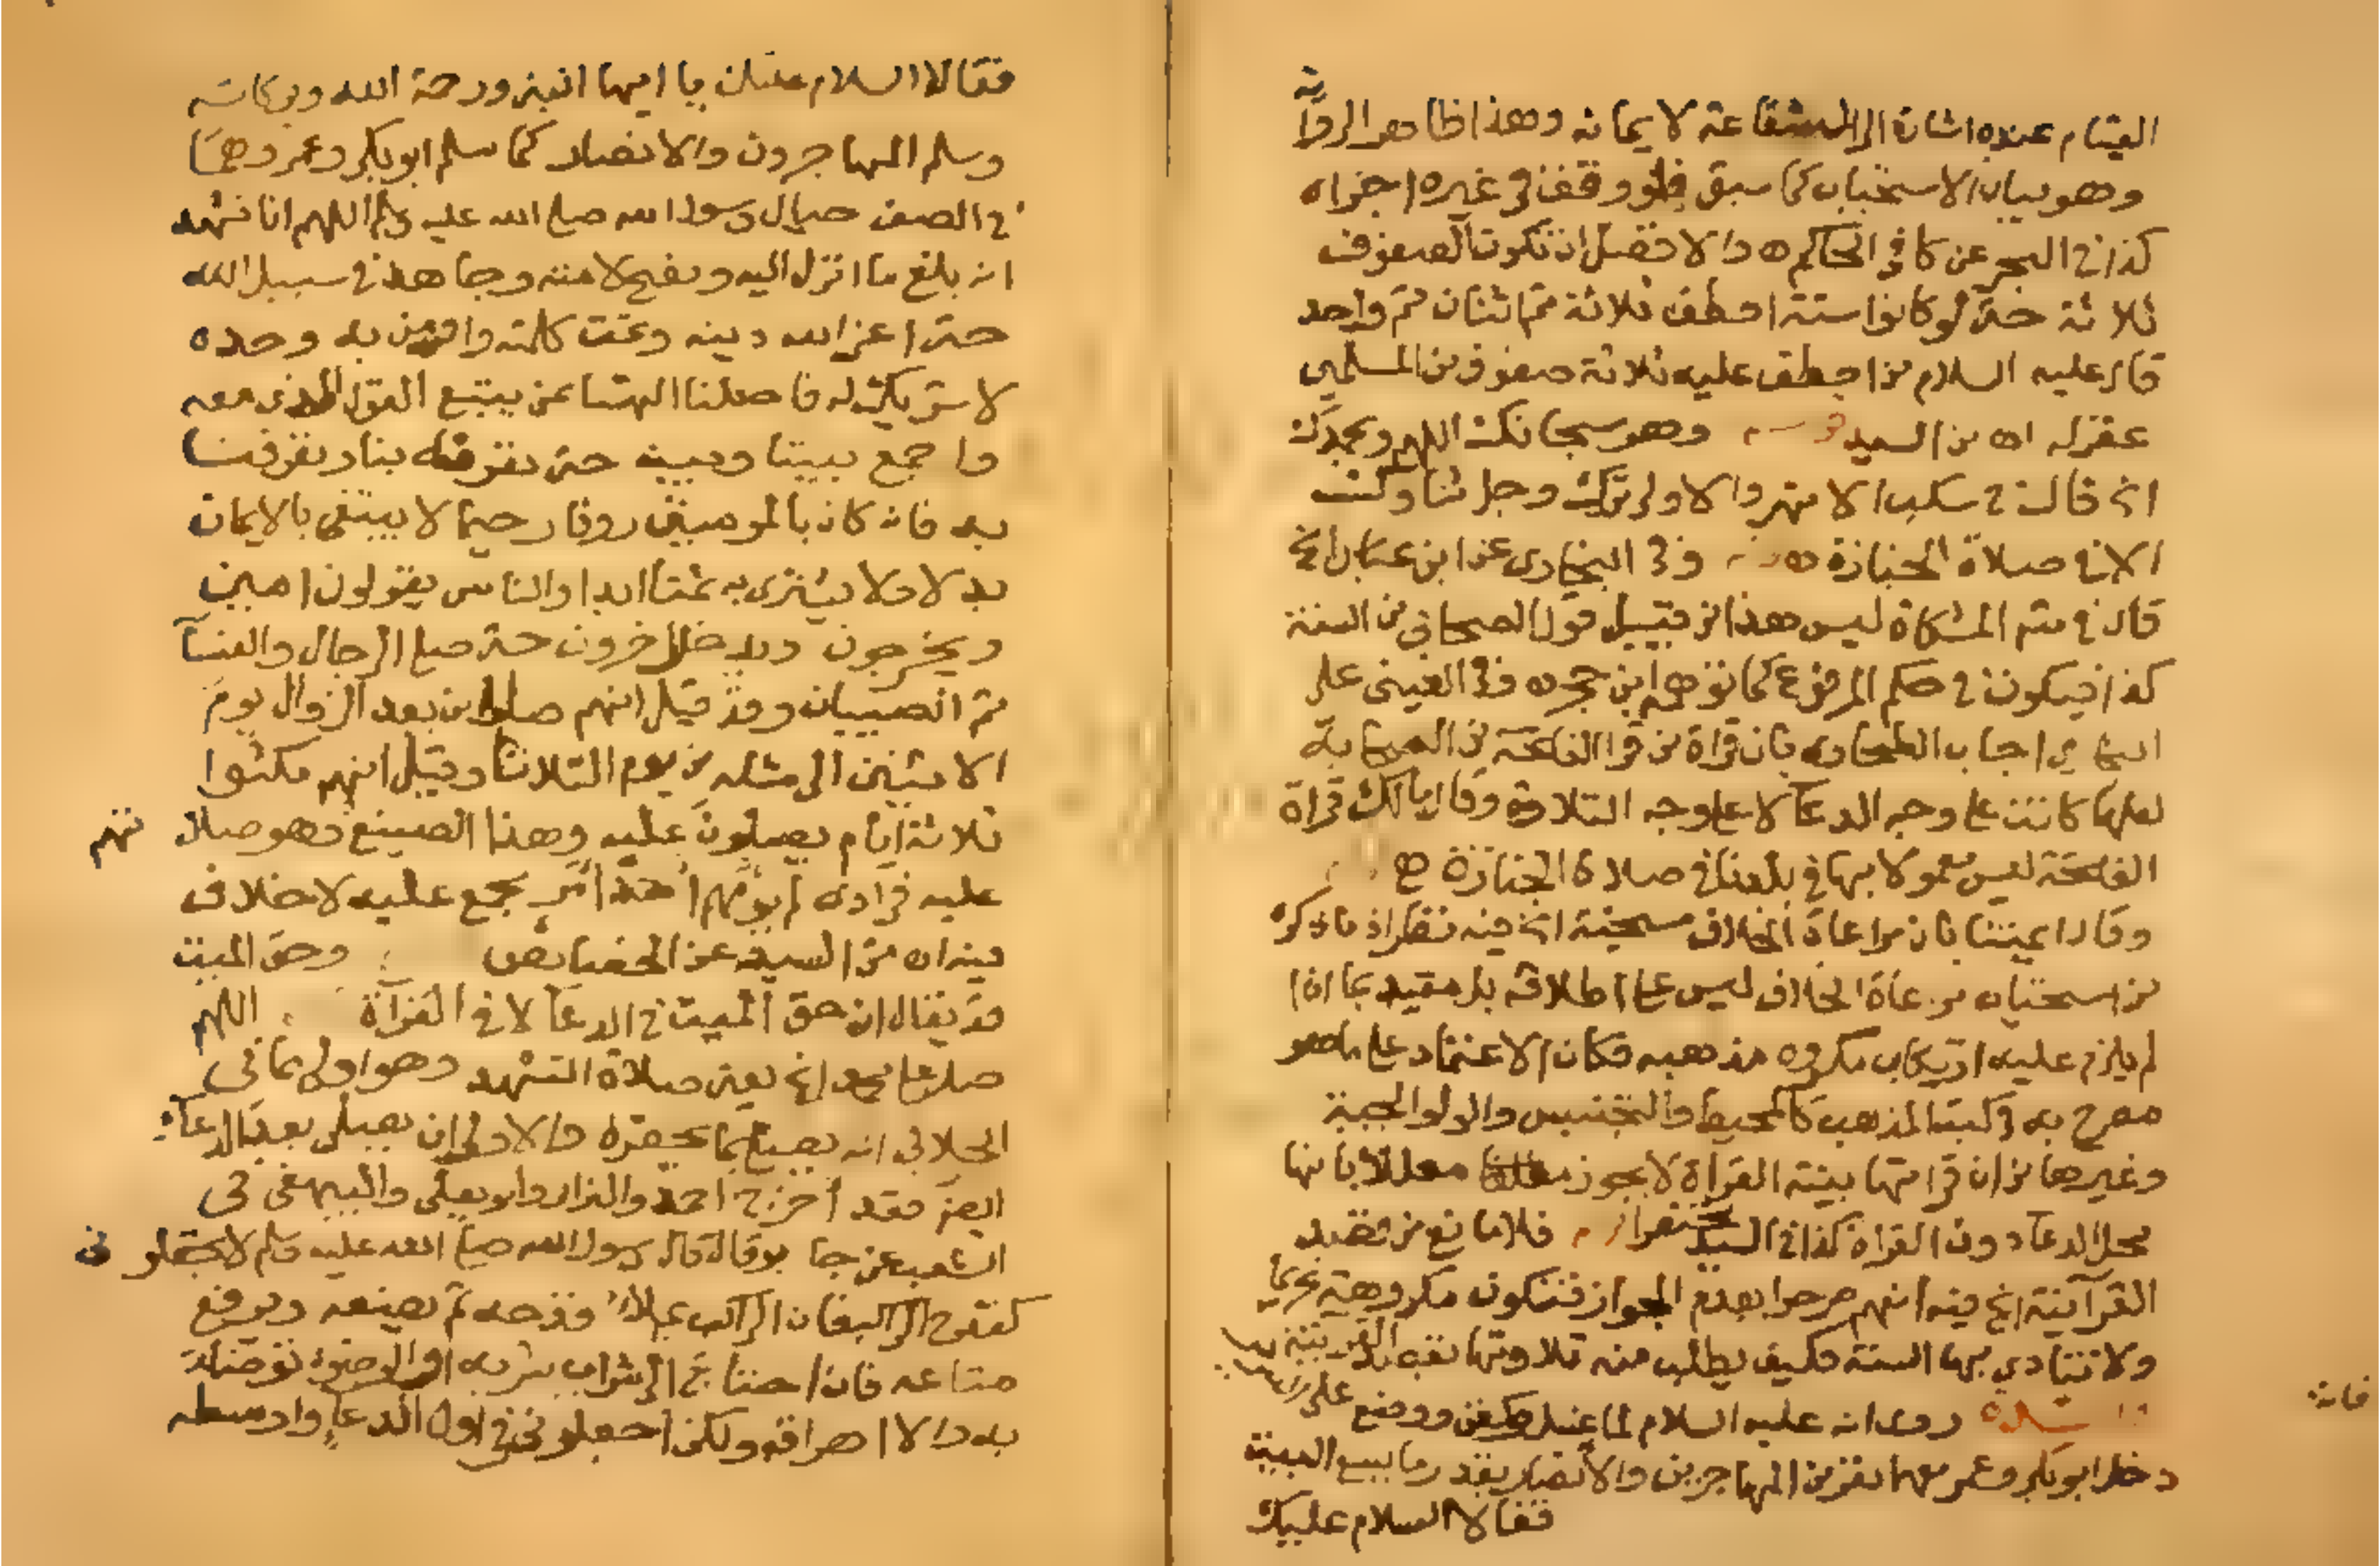 القيام عنده اشارة الى الشفاعة لايمانه وهذا ظاهر الرواية
وهو بيان الاستحباب كما سبق فلو وقف في غيره اجزاه
كذا في البحر عن كافي الحاكم اه والافضل ان تكون الصفوف
ثلاثة حتى لو كانوا ستة اصطف ثلاثة ثم اثنان ثم واحد
قال عليه السلام من اصطف عليه ثلاثة صفوف من المسلمين
غفر له اه من السيد وهو سبحانك اللهم وبحمدك
الخ قال في سكب الانهر والاولى ترك وجل ثناؤك
الا في صلاة الجنازة اه وفي البخاري عن ابن عباس الخ
قال في شرح المشكاة ليس هذا من قبيل قول الصحابي من السنة
كذا فيكون في حكم المرفوع كما توهمه ابن حجر اه وفي العيني على
البخاري اجاب الطحاوي بان قراة من قرا الفاتحة من الصحابة
لعلها كانت على وجه الدعآ لا على وجه التلاوة وقال مالك قراة
الفاتحة ليس معمولا بها في بلدنا في صلاة الجنازة اه
وقال ائمتنا بان مراعاة الخلاف مستحبة الخ فيه نظر اذ ما ذكره
من استحباب مراعاة الخلاف ليس على اطلاقه بل مقيد بما اذا
لم يلزم عليه ارتكاب مكروه مذهبه فكان الاعتماد على ما هو
مصرح به في كتب المذهب كالمحيط والتجنيس والولوالجية
وغيرها من ان قراتها بنية القراة لا يجوز معللا بانها
محل الدعآ دون القراة كذا في السيد فلا مانع من قصد
القرآنية الخ فيه انهم صرحوا بعدم الجواز فتكون مكروهة تحريما
ولا تتادى بها السنة فكيف يطلب منه تلاوتها بقصد القرآنية
روى انه عليه السلام لما غسل وكفن ووضع على
فائدة
دخل ابو بكر وعمر معهما نفر من المهاجرين والانصار بقدر ما يسع البيت
فقالا السلام عليك
فقالا السلام عليك يا ايها النبي ورحمة الله وبركاته
وسلم المهاجرون والانصار كما سلم ابو بكر وعمر وهما
في الصف حيال رسول الله صلى الله عليه وسلم اللهم انا نشهد
انه بلغ ما انزل اليه ونصح لامته وجاهد في سبيل الله
حتى اعز الله دينه وتمت كلمته واومن به وحده
لا شريك له فاجعلنا الهنا ممن يتبع القول الذي معه
واجمع بيننا وبينه حتى تعرفه بنا وتعرفنا
به فانه كان بالمومنين روفا رحيما لا يبتغى بالايمان
بدلا ولا يشترى به ثمنا ابدا والناس يقولون امين
ويخرجون ويدخل اخرون حتى صلى الرجال والنسآ
ثم الصبيان وقد قيل انهم صلوا من بعد الزوال يوم
الاثنين الى مثله من يوم الثلاثا وقيل انهم مكثوا
ثلاثة ايام يصلون عليه وهذا الصنيع وهو صلاتهم
عليه فرادى لم يؤمهم احد امر مجمع عليه لا خلاف
فيه اه من السيد عن الخصائص وحق الميت
قد يقال ان حق الميت في الدعآ لا في القرآة اللهم
صل على محمد الخ يعني صلاة التشهد وهو اولى مما في
الجلابي انه يصلي بما يحضره والاولى ان يصلى بعد الدعآء
ايضا فقد اخرج احمد والبزار وابو يعلى والبيهقي في
الشعب عن جابر قال قال رسول الله صلى الله عليه وسلم لا تجعلوني
كقدح الراكب فان الراكب يملا قدحه ثم يضعه ويرفع
متاعه فان احتاج الى شراب شربه او الوضوء توضأ
به والا اهراقه ولكن اجعلوني في اول الدعآ واوسطه